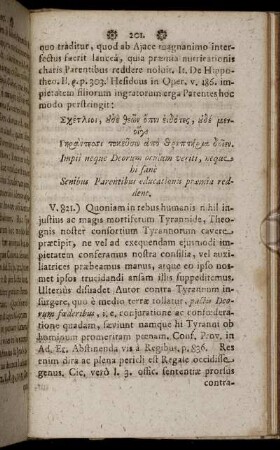 201.
quo traditur, quod ab Ajace magnanimo inter-
fectus fuerit lanceâ, quia præmia nutricationis
charis Parentibus reddere noluit. It. De Hippo-
theo. Il. p. 303. Hesiodus in Oper. v. 186. im-
pietatem filiorum ingratorum erga Parentes hoc
modo perstringit:
Σχέτλιοι, θεῶν ὄπιν
Γηράντεσσι τοκεῦσιν ἀπὸ θρεπτήρια δοῖεν.
Impii neque Deorum oculum veriti, neque
hi sane
Senibus Parentibus educationis præmia red-
dent.
V. 821.) Quoniam in rebus humanis nihil in-
justius ac magis mortiferum Tyrannide, Theo-
gnis noster consortium Tyrannorum cavere
præcipit, ne vel ad exequendam ejusmodi im-
pietatem conferamus nostra consilia, vel au-
xiliatrices præbeamus manus, atque eo ipso no-
met ipsos trucidandi ansam illis suppeditemus.
Ulterius dissuadet Autor contra Tyrannum in-
surgere, quo è medio terræ tollatur, pacto Deo-
rum fœderibus, i. e. conjuratione ac confœdera-
tione quadam, sæviunt namque hi Tyranni ob
hominum promeritam pœnam. Conf. Prov. in
Ad. Er. Abstinenda vis à Regibus. p. 836. Res
enim dira ac plena periculi est Regale occidisse
genus. Cic. verò l. 3. offic. sententiæ prorsus
contra-